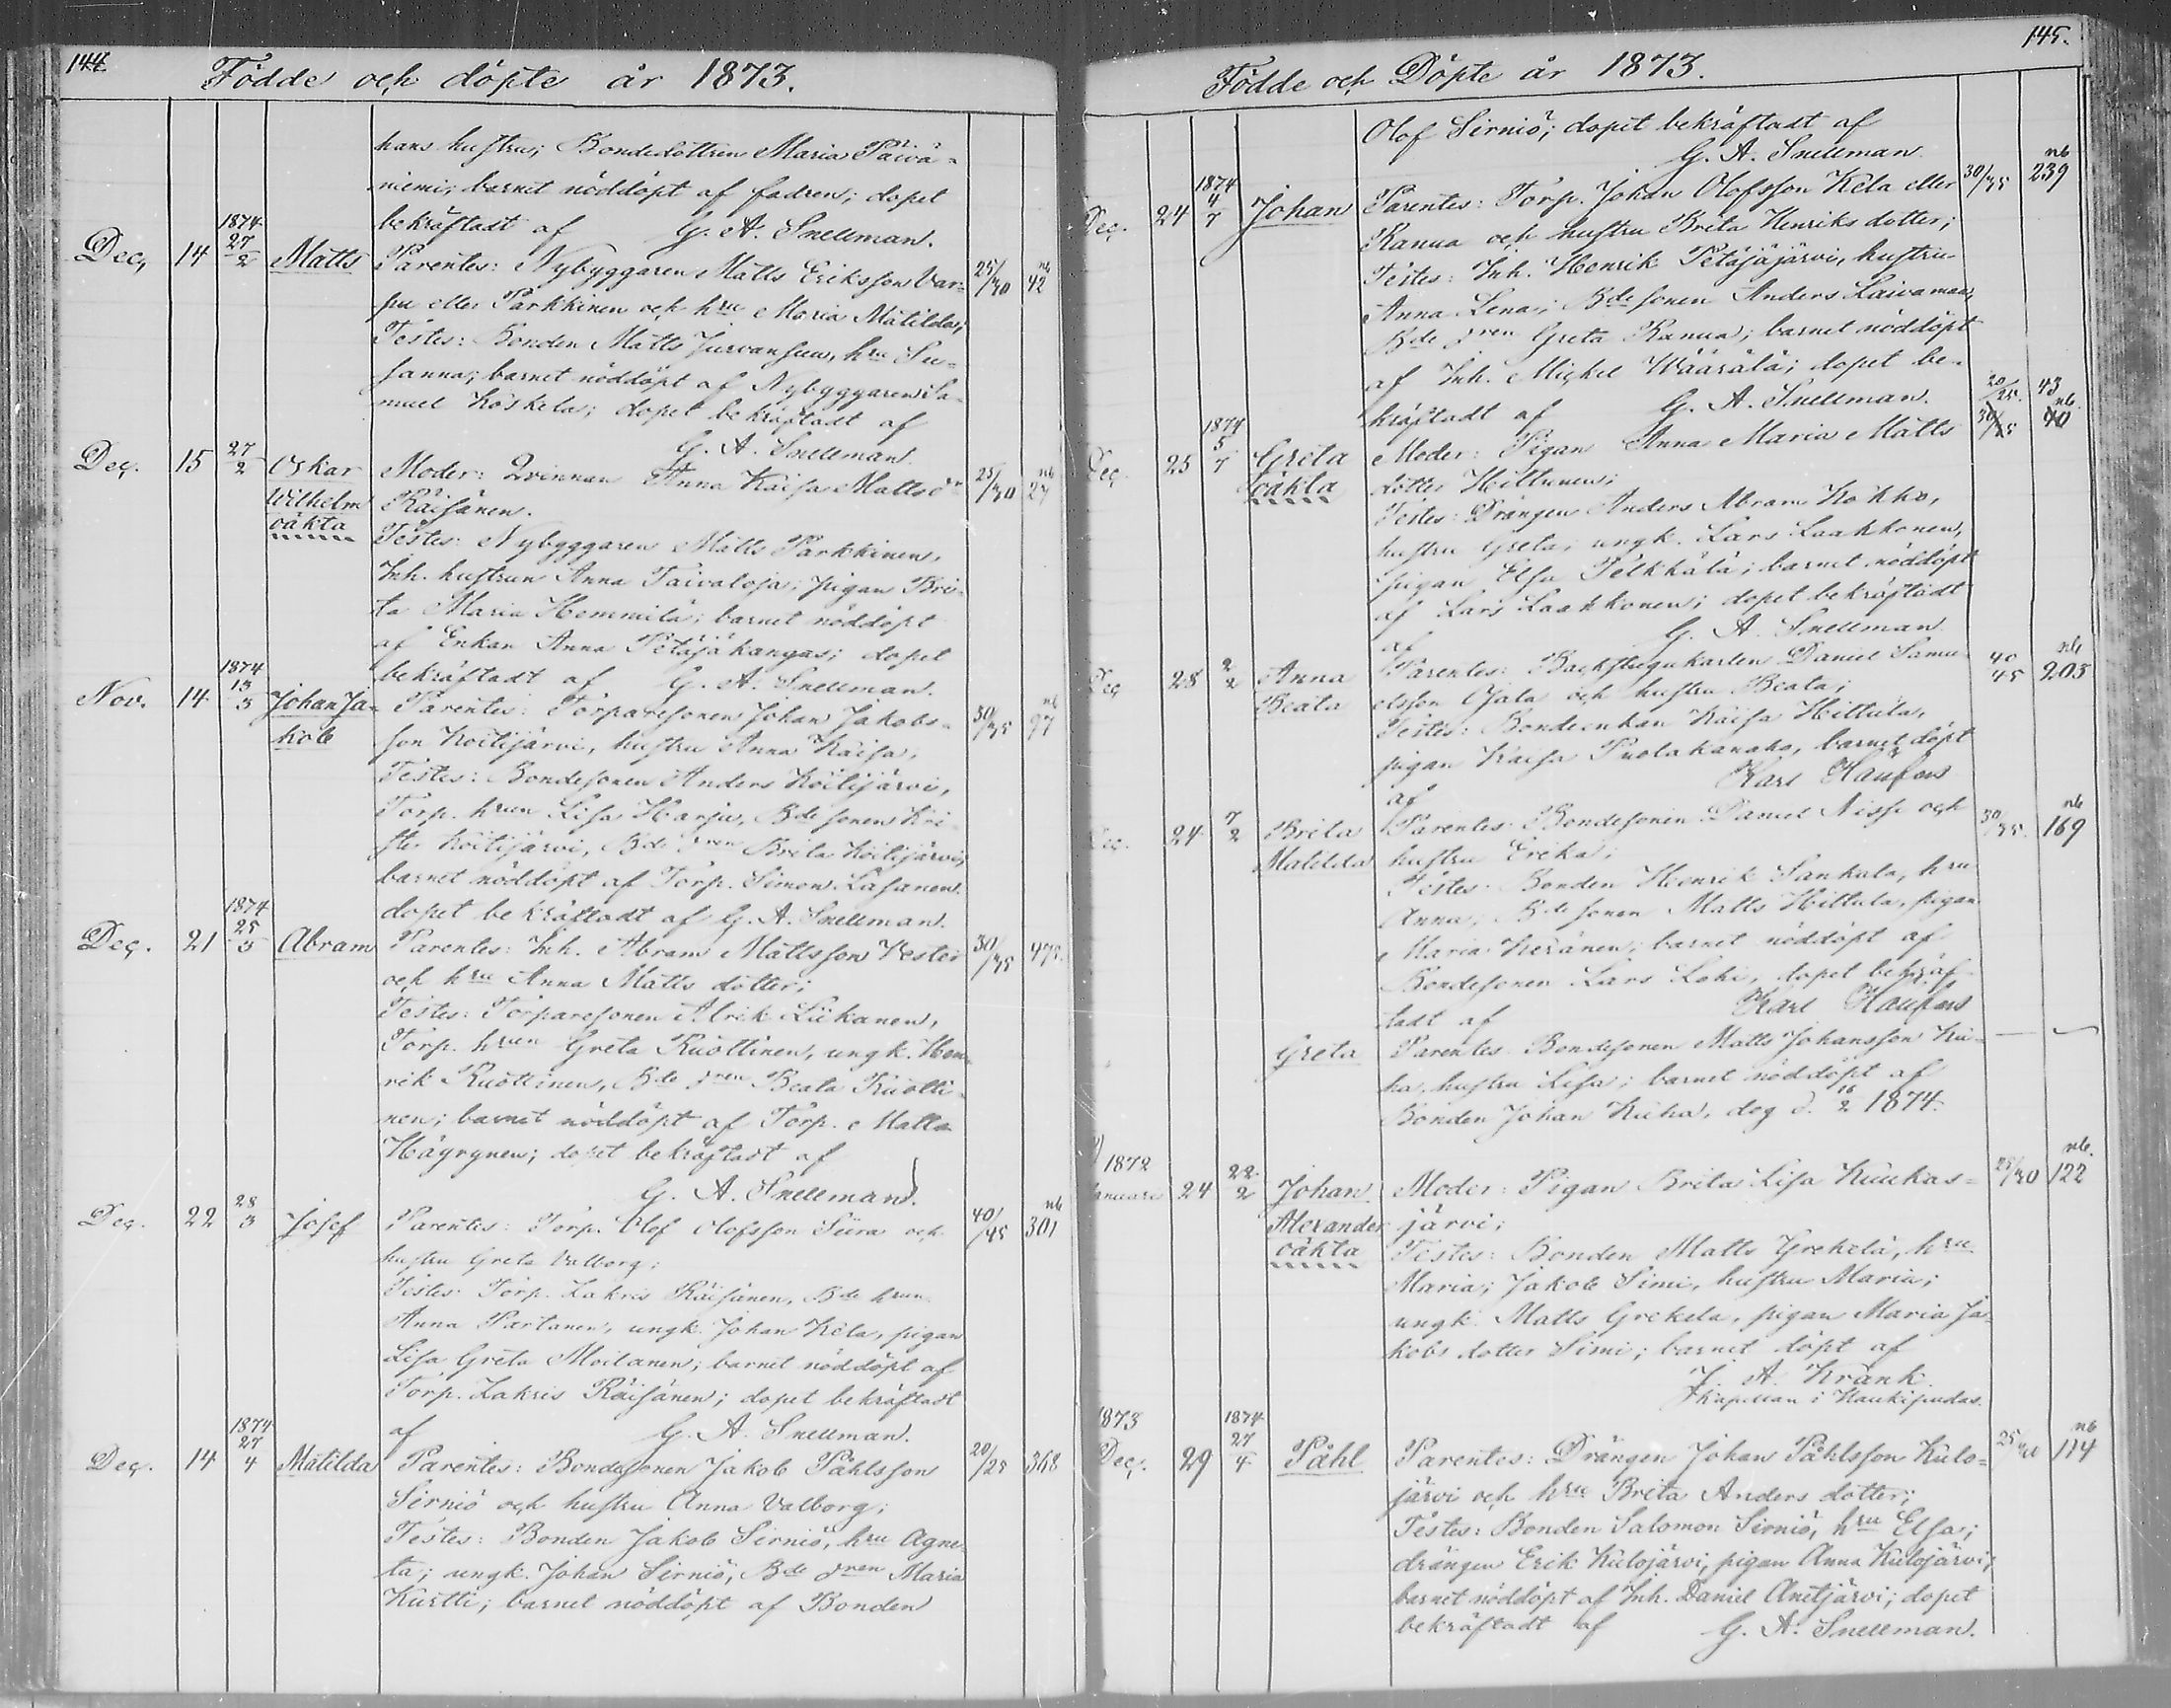 144
Födde och döpte år 1873.
hans hustru; Bondedottren Maria Päivä-
niemi; barnet nöddöpt af fadren; dopet
bekräftadt af G. A. Snellman.
Dec. 14 1874 27/2 Matts Parentes: Nybyggaren Matts Eriksson Var- 25/30 nb 42
pu eller Parkkinen och hru Maria Matilda;
Testes: Bonden Matts Jurvansuu, hru Su-
sanna; barnet nöddöpt af Nybyggaren Sa-
muel Koskela; dopet bekräftadt af
G. A. Snellman.
Dec. 15 27/2 Oskar Moder: Qvinnan Anna Kaisa Mattsd:r 25/30 nb 27
Wilhelm Räisänen.
oäkta Testes: Nybyggaren Matts Parkkinen,
Inh. hustrun Anna Taivaloja; pigan Bri-
ta Maria Hemmilä; barnet nöddöpt
af Enkan Anna Petäjäkangas; dopet
bekräftadt af G. A. Snellman.
Nov. 14 1874 13/3 Johan Ja- Parentes: Torparesonen Johan Jakobs- 30/35 nb 97
kob son Koitijärvi, hustru Anna Kaisa;
Testes: Bondesonen Anders Koitijärvi,
Torp. hrun Lisa Harju, Bde sonen Kri-
ster Koitijärvi, Bde dren Brita Koitijärvi;
barnet nöddöpt af Torp. Simon Lasanen
dopet bekräftadt af G. A. Snellman.
Dec. 21 1874 25/3 Abram Parentes: Inh. Abram Mattsson Vester 30/35 475.
och hru Anna Matts dotter;
Testes: Torparesonen Alrik Liikanen,
Torp. hrun Greta Ruottinen, ungk. Hen-
rik Ruottinen, Bde dren Beata Ruotti-
nen; barnet nöddöpt af Torp. Matts
Häyrynen; dopet bekräftadt af
G. A. Snellman.
Dec. 22 28/3 Josef Parentes: Torp. Olof Olofsson Siira och 40/45 nb 301
hustru Greta Valborg;
Testes: Torp. Zakris Räisänen, Bde hrun
Anna Partanen, ungk. Johan Kela, pigan
Lisa Greta Moilanen; barnet nöddöpt af
Torp. Zakris Räisänen; dopet bekräftadt
af G. A. Snellman.
Dec. 14 1874 27/4 Matilda Parentes: Bondesonen Jakob Påhlsson 20/25 368
Sirniö och hustru Anna Valborg;
Testes: Bonden Jakob Sirniö, hru Agne-
ta; ungk. Johan Sirniö, Bde dren Maria
Kurtti; barnet nöddöpt af Bonden
145.
Födde och Döpte år 1873.
Olof Sirniö; dopet bekräftadt af
G. A. Snellman.
Dec. 24 1874 4/7 Johan Parentes: Torp. Johan Olofsson Kela eller 30/35 nb 239
Ranua och hustru Brita Henriks dotter;
Testes: Inh. Henrik Petäjäjärvi, hustru
Anna Lena; Bde sonen Anders Laivamaa,
Bde dren Greta Ranua; barnet nöddöpt
af Inh. Michel Wäärälä; dopet be-
kräftadt af G. A. Snellman. 20/25. 43
Dec. 25 1874 5/7 Greta Moder: Pigan Anna Maria Matts nb.
oäkta dotter Hiltunen;
Testes: Drängen Anders Abram Kokko,
hustru Greta; ungk. Lars Laakkonen,
pigan Elsa Pelkkälä; barnet nöddöpt
af Lars Laakkonen; dopet bekräftadt
af G. A. Snellman.
Dec 28 2/2 Anna Parentes: Backstugukarlen Daniel Samu- 40/45 nb 203
Beata elsson Ojala och hustru Beata;
Testes: Bondeenkan Kaisa Hiltula,
pigan Kaisa Puolakanaho, barnet döpt
af Karl
Dec. 24 7/2 Brita Parentes: Bondesonen Daniel Nissi och 30/35. nb 169
Matilda hustru Erika;
Testes: Bonden Henrik Sankala, hru
Anna; Bde sonen Matts Hiltula, pigan
Maria Keränen; barnet nöddöpt af
Bondesonen Lars Loki, dopet bekräf-
tadt af Karl
Greta Parentes: Bondesonen Matts Johansson Ku-
ha, hustru Lisa; barnet nöddöpt af
Bonden Johan Kuha, dog d. 16/2 1874.
1872
Januari 24 22/2 Johan Moder: Pigan Brita Lisa Kuukas- 25/30 nb. 122
Alexander järvi;
oäkta Testes: Bonden Matts Grekelä, hru
Maria; Jakob Simi, hustru Maria;
ungk. Matts Grekela, pigan Maria Ja-
kobs dotter Simi; barnet döpt af
J. A. Krank.
Kapellan i Haukipudas.
1873
Dec. 29 1874 27/4 Påhl Parentes: Drängen Johan Påhlsson Kulo- 25/30 nb 114
järvi och hru Brita Anders dotter;
Testes: Bonden Salomon Sirniö, hru Elsa;
drängen Erik Kulojärvi, pigan Anna Kulojärvi;
barnet nöddöpt af Inh. Daniel Anetjärvi; dopet
bekräftadt af G. A. Snellman.